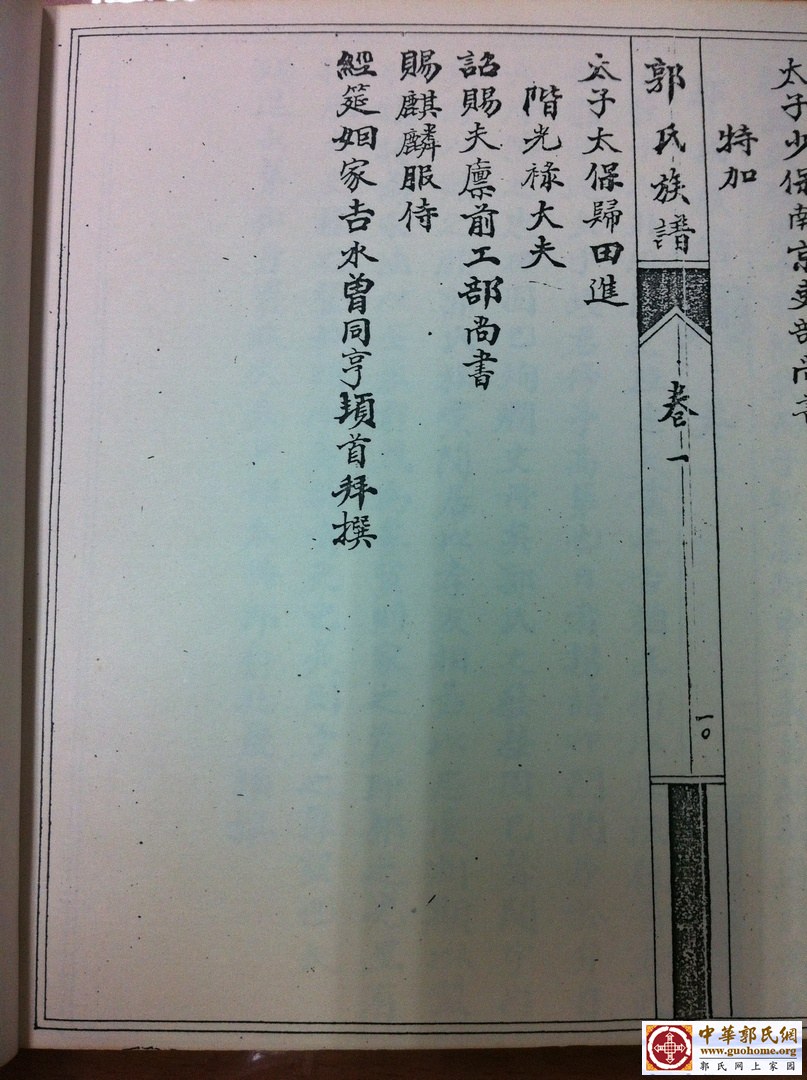 太子少保南京吏部尚書
特加
郭氏族譜
卷一
一〇
太子太保歸田進
階光祿大夫
詔賜夫廩前工部尚書
賜麒麟服侍
經筵姻家吉水曾同亨頓首拜撰
中華郭氏網
www.guohome.org
郭氏網上家園